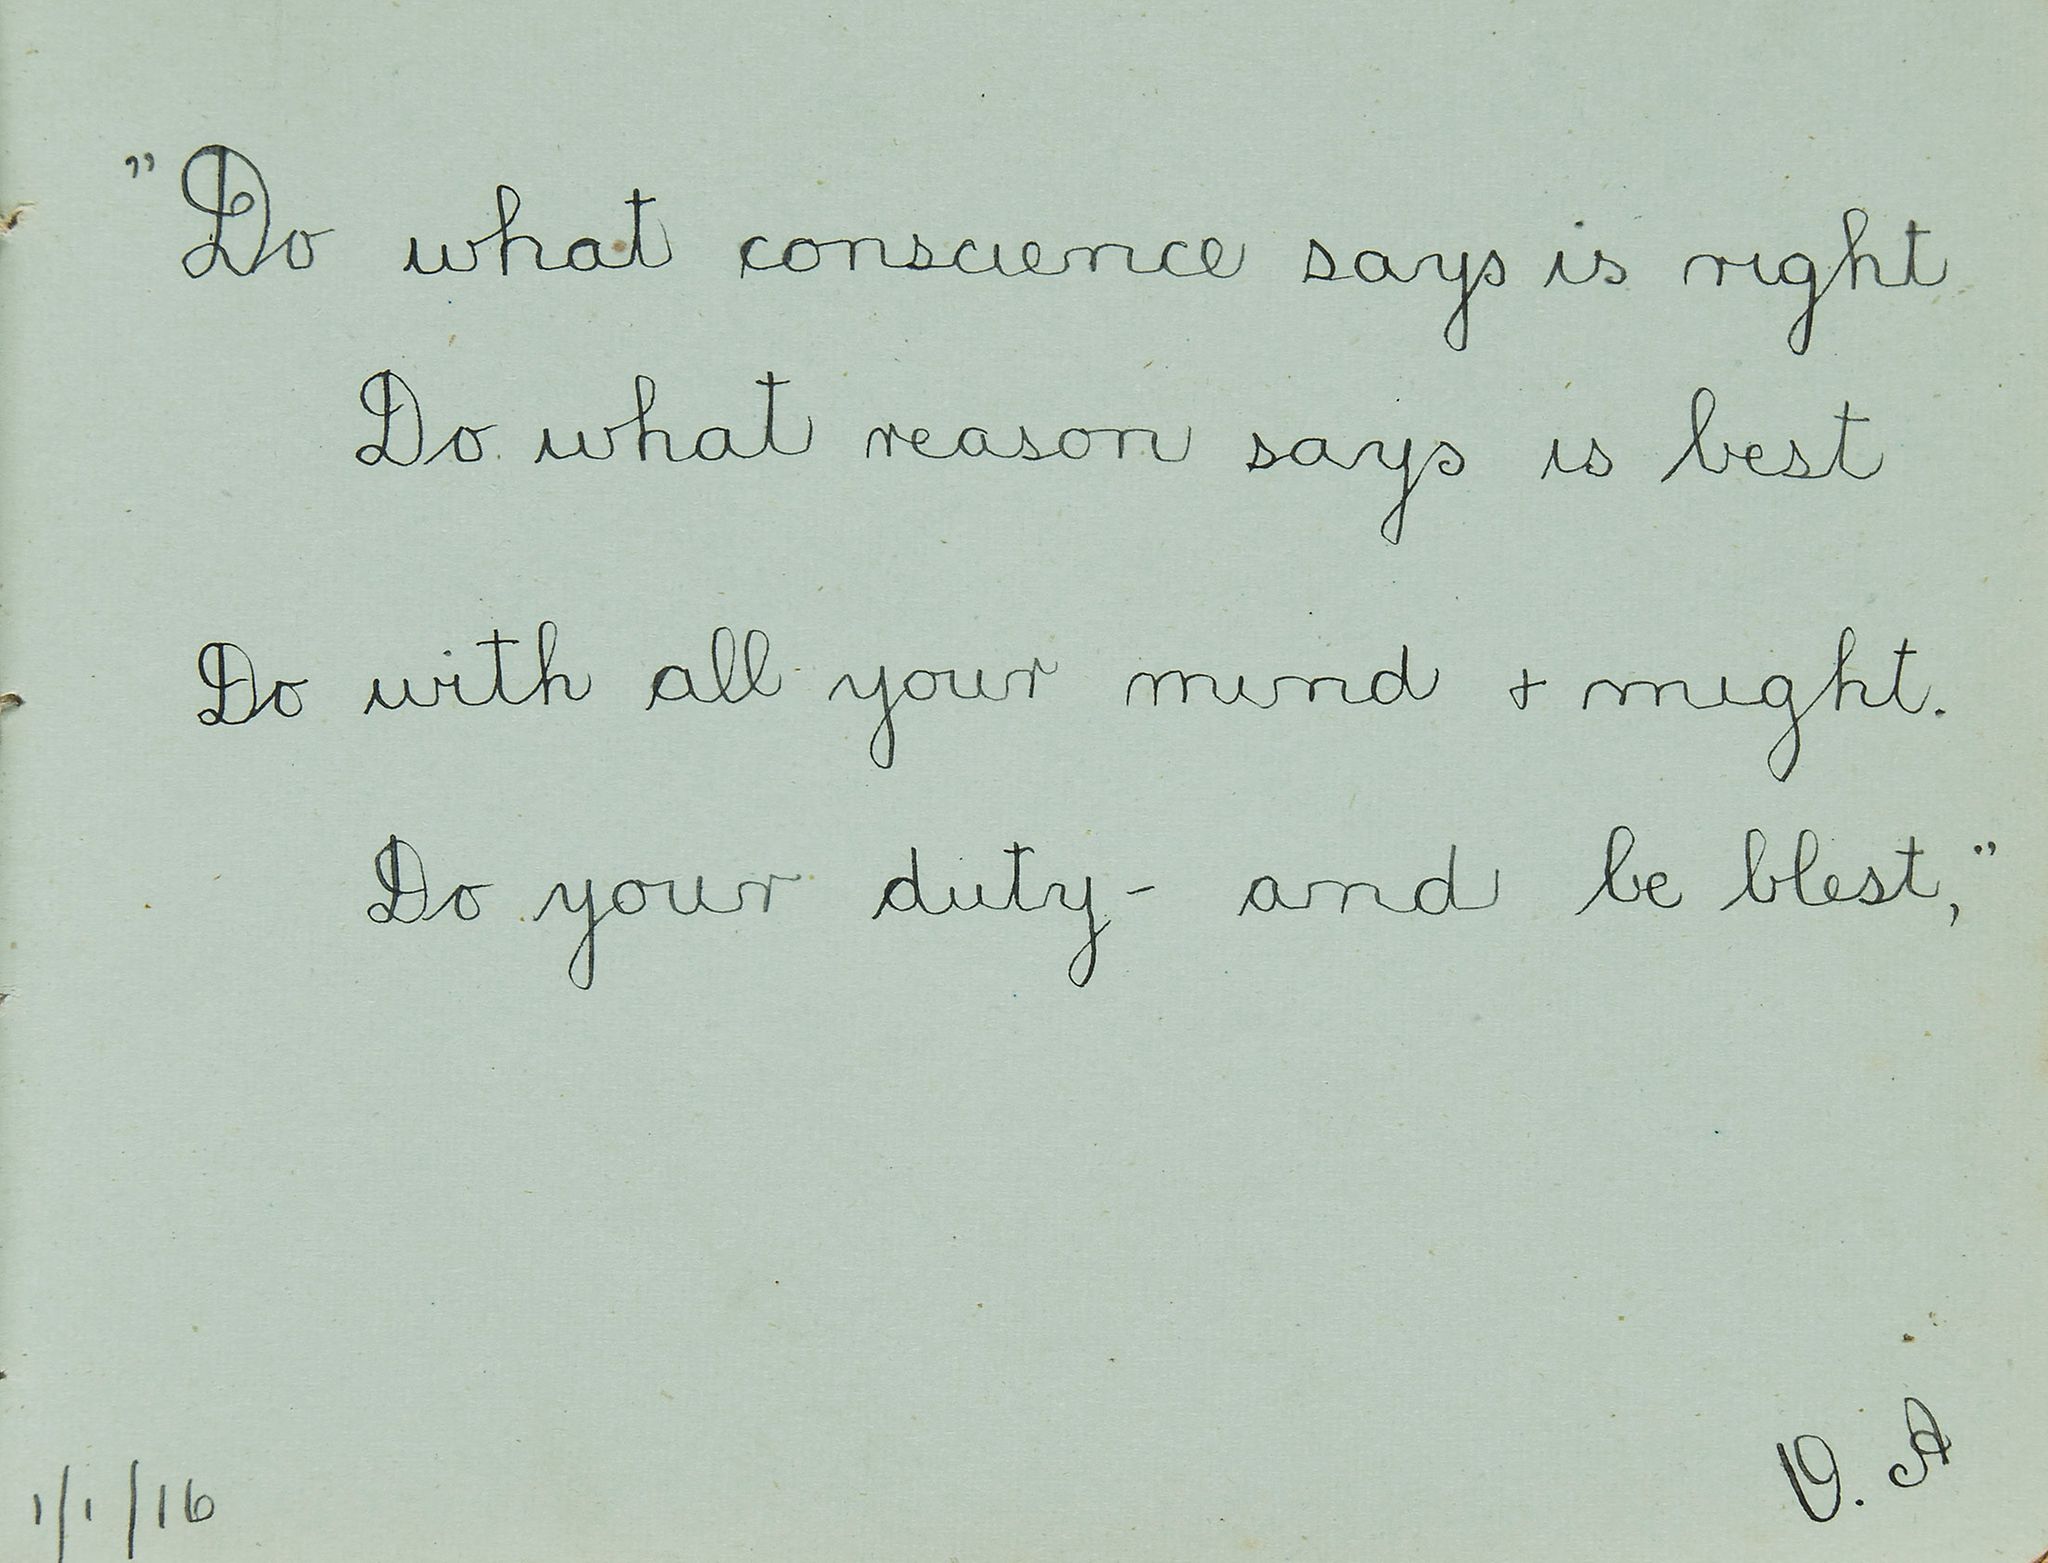 "Do what conscience says is right
Do what reason says is best
Do with all your mind + might.
Do your duty - and be blest,"
V. A
1/1/16